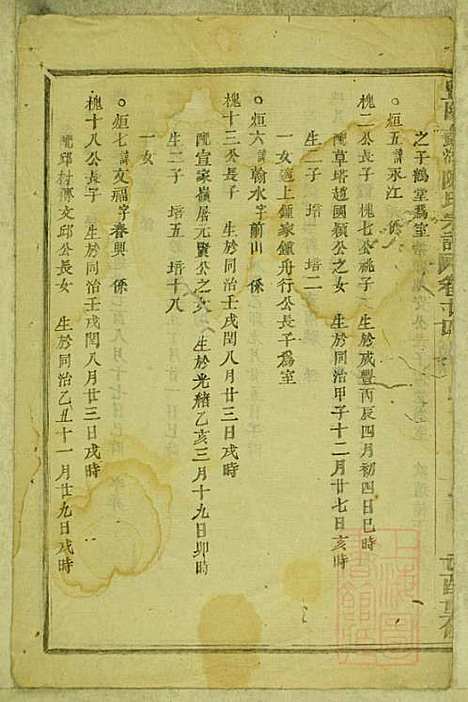 之子鶴堂爲室
○烜五諱永江 係
槐二公長子 槐七公祧子 生於咸豐丙辰四月初四日巳時
配草塔趙國穎公之女 生於同治甲子十二月廿七日亥時
生二子 培一 培二
一女適上鍾家鍾舟行公長子爲室
○烜六諱翰水字前山 係
槐十三公長子 生於同治壬戌閏八月廿三日戌時
配宣家嶺屠元賢公之女 生於光緒乙亥三月十九日卯時
生二子 培五 培十八
一女
○烜七諱文福字春興 係
槐十八公長子 生於同治壬戌閏八月廿三日戌時
配邱村傅文邱公長女 生於同治乙丑十一月廿九日戌時